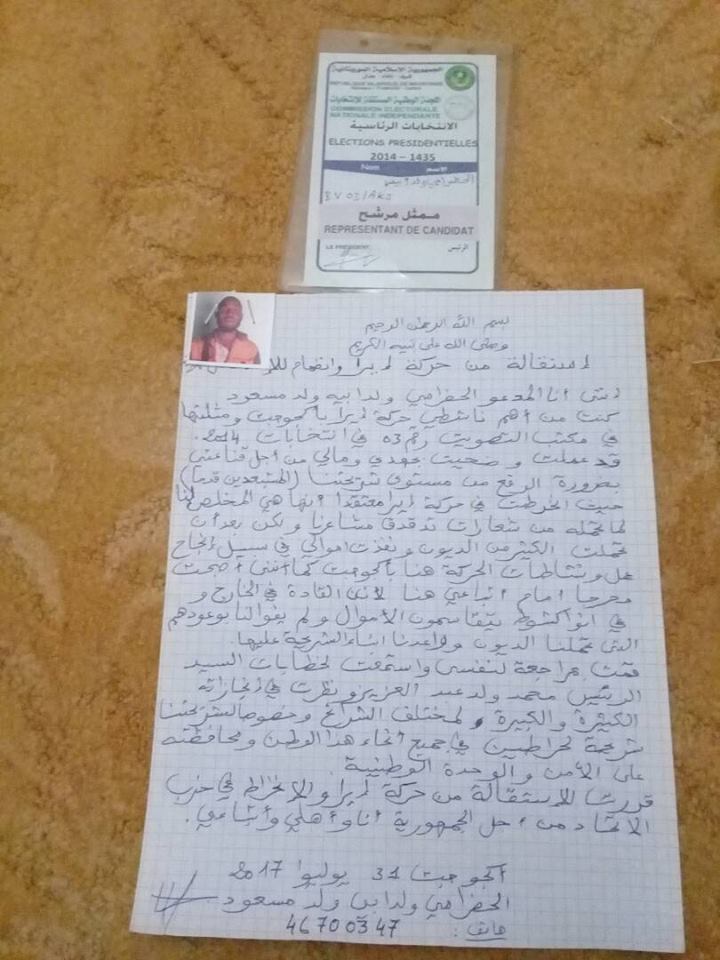 الجمهورية الإسلامية الموريتانية
شرف - إخاء - عدل
REPUBLIQUE ISLAMIQUE DE MAURITANIE
اللجنة الوطنية المستقلة للانتخابات
COMMISSION ELECTORALE
NATIONALE INDEPENDANTE
الانتخابات الرئاسية
ELECTIONS PRESIDENTIELLES
2014 - 1435
Nom الاسم
BV 03/AKJ
ممثل مرشح
REPRESENTANT DE CANDIDAT
LE PRESIDENT الرئيس
بسم الله الرحمن الرحيم
وصلى الله على نبيه الكريم
استقالة من حركة إيرا وانضمام
إنني أنا المدعو الحضرامي ولد ابيه ولد مسعود
كنت من أهم ناشطي حركة إيرا بأكجوجت ومثلتها
في مكتب التصويت رقم 03 في انتخابات 2014.
قد عملت وضحيت بجهدي ومالي من أجل قناعتي
بضرورة الرفع من مستوى شريحتنا (المستبعدين قدما)
حيث انخرطت في حركة إيرا معتقدا أنها هي المخلص لنا
لما تحمله من شعارات تدغدغ مشاعرنا ولكن بعد أن
تحملت الكثير من الديون ونفذت أموالي في سبيل إنجاح
عمل ونشاطات الحركة هنا بأكجوجت كما أنني أصبحت
محرجا أمام أتباعي هنا لأن القادة في الخارج و
في انواكشوط يتقاسمون الأموال ولم يفوا لنا بوعودهم
التي تحملنا الديون وواعدنا أبناء الشريحة عليها.
قمت بمراجعة لنفسي واستمعت لخطابات السيد
الرئيس محمد ولد عبد العزيز ونظرت في إنجازاته
الكثيرة والكبيرة لمختلف الشرائح وخصوصا لشريحتنا
شريحة لحراطين في جميع أنحاء هذا الوطن ومحافظته
على الأمن والوحدة الوطنية
قررت الاستقالة من حركة إيرا والإنخراط في حزب
الاتحاد من أجل الجمهورية أنا وأهلي وأتباعي.
أكجوجت 31 يوليو 2017
الحضرامي ولد ابيه ولد مسعود
هاتف: 46700347